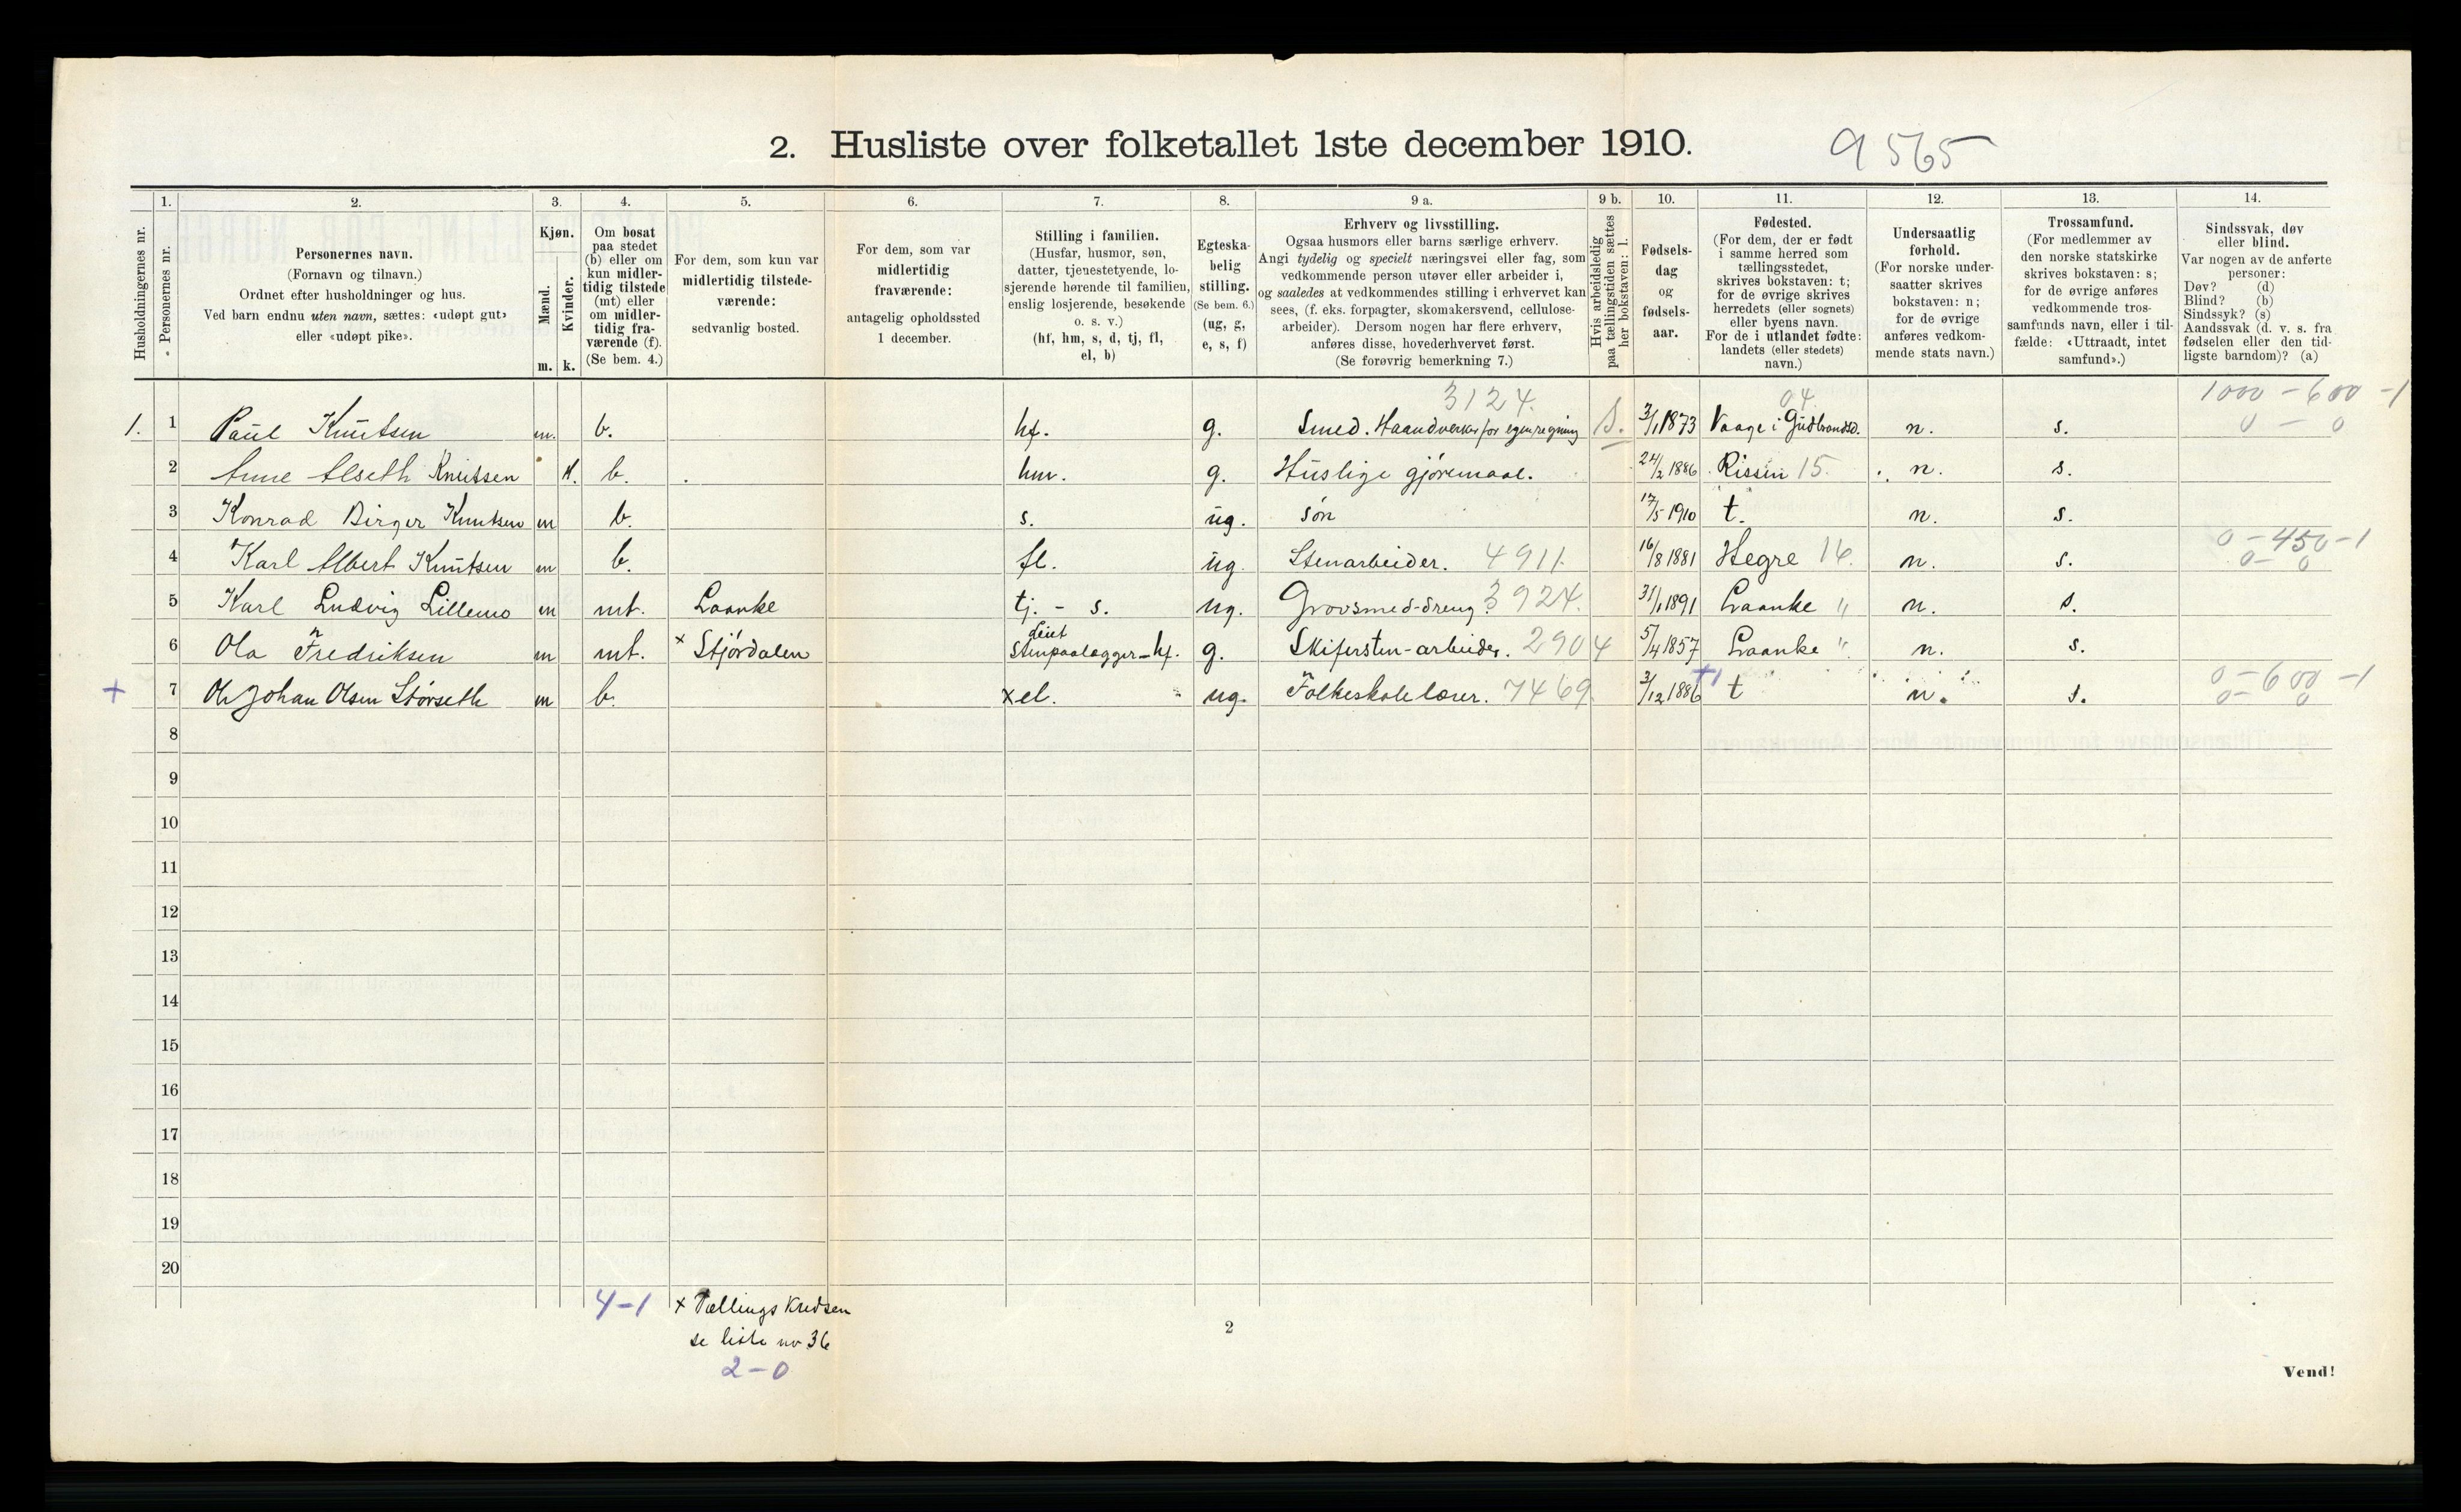 2. Husliste over folketallet 1ste december 1910.
9565
Husholdningernes nr.
1.
Personernes nr.
2.
Personernes navn.
(Fornavn og tilnavn.)
Ordnet efter husholdninger og hus.
Ved barn endnu uten navn, sættes: «udøpt gut»
eller «udøpt pike».
3.
Kjøn.
Mænd.
Kvinder.
m. k.
4.
Om bosat
paa stedet
(b) eller om
kun midler-
tidig tilstede
(mt) eller
om midler-
tidig fra-
værende (f).
(Se bem. 4.)
5.
For dem, som kun var
midlertidig tilstede-
værende:
sedvanlig bosted.
6.
For dem, som var
midlertidig
fraværende:
antagelig opholdssted
1 december.
7.
Stilling i familien.
(Husfar, husmor, søn,
datter, tjenestetyende, lo-
sjerende hørende til familien,
enslig losjerende, besøkende
o. s. v.)
(hf, hm, s, d, tj, fl,
el, b)
8.
Egteska-
belig
stilling.
(Se bem. 6.)
(ug, g,
e, s, f)
9 a.
Erhverv og livsstilling.
Ogsaa husmors eller barns særlige erhverv.
Angi tydelig og specielt næringsvei eller fag, som
vedkommende person utøver eller arbeider i,
og saaledes at vedkommendes stilling i erhvervet kan
sees, (f. eks. forpagter, skomakersvend, cellulose-
arbeider). Dersom nogen har flere erhverv,
anføres disse, hovederhvervet først.
(Se forøvrig bemerkning 7.)
9 b.
Hvis arbeidsledig
paa tællingstiden sættes
her bokstaven: l.
10.
Fødsels-
dag
og
fødsels-
aar.
11.
Fødested.
(For dem, der er født
i samme herred som
tællingsstedet,
skrives bokstaven: t;
for de øvrige skrives
herredets (eller sognets)
eller byens navn.
For de i utlandet fødte:
landets (eller stedets)
navn.)
12.
Undersaatlig
forhold.
(For norske under-
saatter skrives
bokstaven: n;
for de øvrige
anføres vedkom-
mende stats navn.)
13.
Trossamfund.
(For medlemmer av
den norske statskirke
skrives bokstaven: s;
for de øvrige anføres
vedkommende tros-
samfunds navn, eller i til-
fælde: «Uttraadt, intet
samfund».)
14.
Sindssvak, døv
eller blind.
Var nogen av de anførte
personer:
Døv? (d)
Blind? (b)
Sindssyk? (s)
Aandssvak (d. v. s. fra
fødselen eller den tid-
ligste barndom)? (a)
3124. 04. 1000 - 600 - 1
1. 1 Paul Knutsen m. b. hf. g. Smed. Haandverker for egen regning S. 3/1 1873 Vaage i Gudbrandsd. n. s. 0 - 0
2 Anne Alseth Knutsen k. b. hm. g. Huslige gjøremaal. 24/2 1886 Rissen 15. n. s.
3 Konrad Birger Knutsen m b. s. ug. søn 17/5 1910 t. n. s.
0 - 450 - 1
4 Karl Albert Knutsen m b. fl. ug. Stenarbeider. 4911. 16/8 1881 Hegre 16. n. s. 0 - 0
5 Karl Ludvig Lillemo m mt. Laanke tj. - s. ug. Grovsmed-dreng. 3924. 31/1 1891 Laanke " n. s.
Leiet
6 Ola Fredriksen m mt. x Stjørdalen Stenpaalægger - hf. g. Skifersten-arbeider. 2904 5/4 1857 Laanke " n. s.
+1 0 - 600 - 1
+ 7 Ole Johan Olsen Størseth m b. x el. ug. Folkeskolelærer. 7469 3/12 1886 t n. s. 0 - 0
8
9
10
11
12
13
14
15
16
17
18
19
20
4-1 x Tællings Kredsen
se liste no 36
2-0
2
Vend!